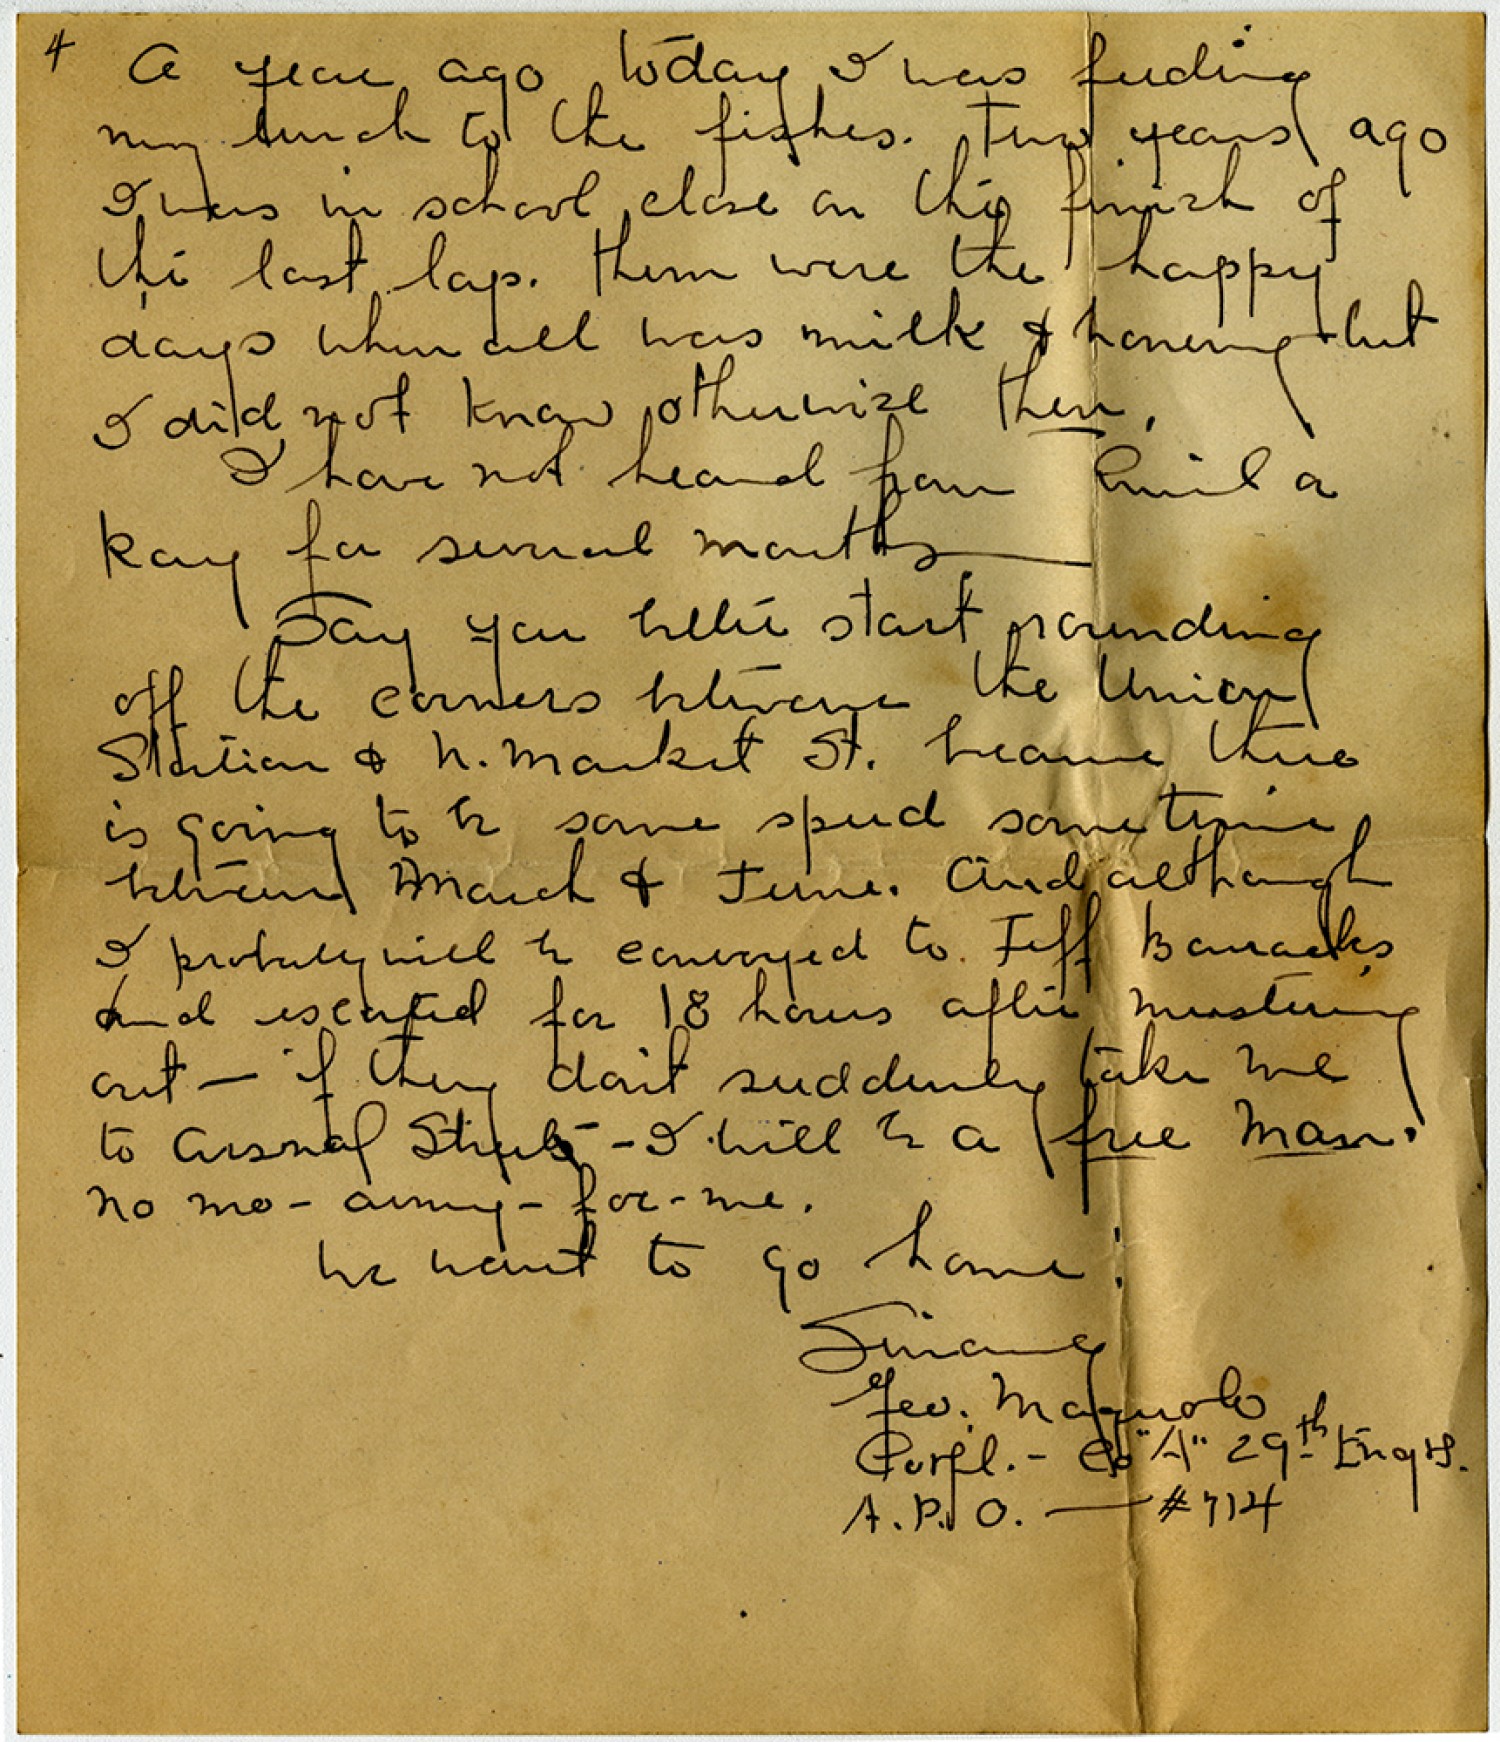 4
A year ago today I was feeding
my lunch to the fishes. Two years ago
I was in school close on the finish of
the last lap. Them were the happy
days when all was milk & honey - but
I did not know otherwise then.
I have not heard from Emil a
Kay for several months
Say you better start rounding
off the corners between the Union
Station & N. Market St. because there
is going to be some speed sometime
between March & June. And although
I probably will be convoyed to Jeff Barracks
and escorted for 18 hours after mustering
out — if they don't suddenly take me
to Arsenal Street - I will be a free man.
no mo - army - for - me.
We want to go home!
Sincerely
Geo. Magnolo
Corpl. - Co "A" 29th Engrs.
A.P.O. — #714